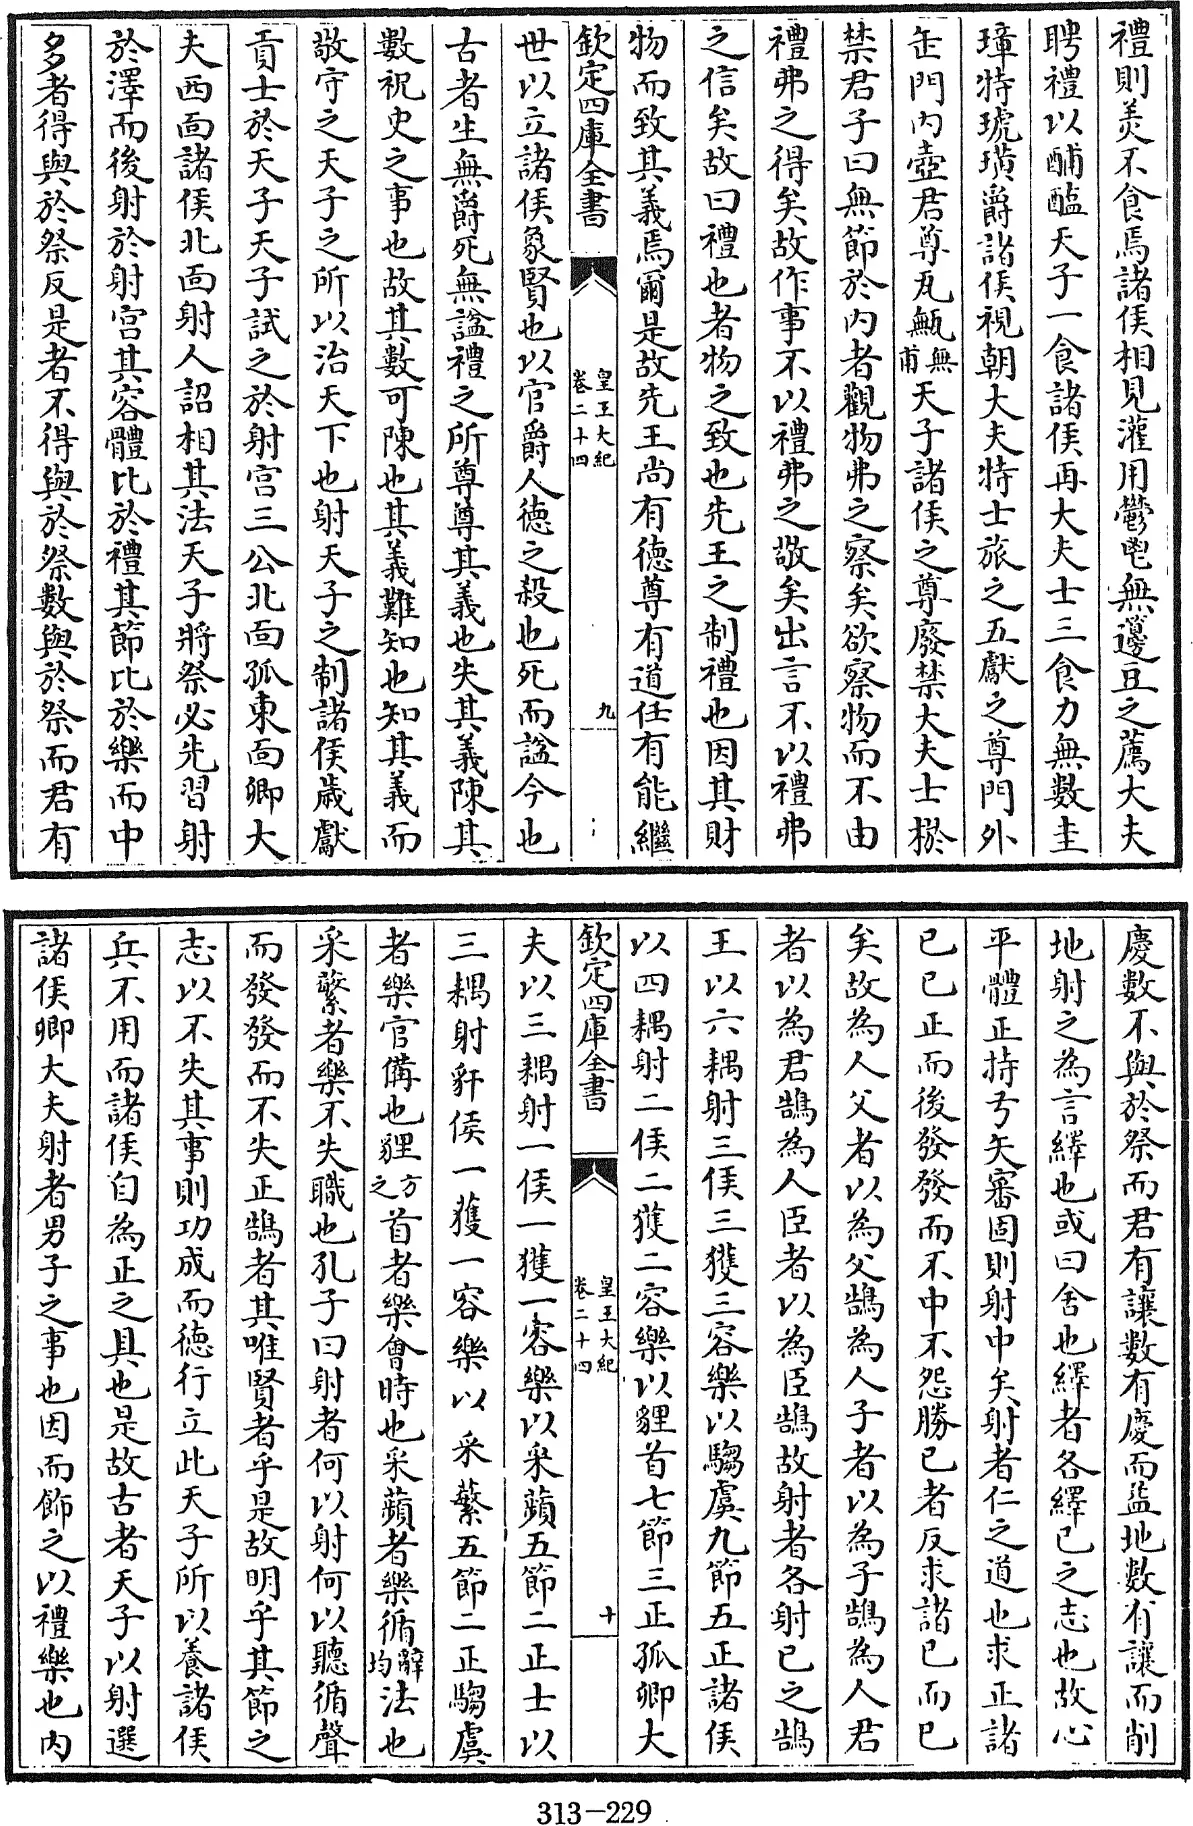 禮則羙不食焉諸侯相見灌用鬱鬯無籩豆之薦大夫
聘禮以酺醢天子一食諸侯再大夫士三食力無數圭
璋特琥璜爵諸侯視朝大夫特士旅之五獻之尊門外
缶門内壺君尊瓦甒無甫天子諸侯之尊廢禁大夫士棜
禁君子曰無節於内者觀物弗之察矣欲察物而不由
禮弗之得矣故作事不以禮弗之敬矣出言不以禮弗
之信矣故曰禮也者物之致也先王之制禮也因其財
物而致其義焉爾是故先王尚有徳尊有道任有能繼
欽定四庫全書
皇王大紀
卷二十四
九
世以立諸侯象賢也以官爵人徳之殺也死而諡今也
古者生無爵死無諡禮之所尊尊其義也失其義陳其
數祝史之事也故其數可陳也其義難知也知其義而
敬守之天子之所以治天下也射天子之制諸侯歳獻
貢士於天子天子試之於射宫三公北面孤東面卿大
夫西面諸侯北面射人詔相其法天子將祭必先習射
於澤而後射於射宫其容體比於禮其節比於樂而中
多者得與於祭反是者不得與於祭數與於祭而君有
慶數不與於祭而君有讓數有慶而益地數有讓而削
地射之為言繹也或曰舍也繹者各繹已之志也故心
平體正持弓矢審固則射中矣射者仁之道也求正諸
已已正而後發發而不中不怨勝已者反求諸已而已
矣故為人父者以為父鵠為人子者以為子鵠為人君
者以為君鵠為人臣者以為臣鵠故射者各射已之鵠
王以六耦射三侯三獲三容樂以騶虞九節五正諸侯
以四耦射二侯二獲二容樂以貍首七節三正孤卿大
欽定四庫全書
皇王大紀
卷二十四
十
夫以三耦射一侯一獲一容樂以采蘋五節二正士以
三耦射豻侯一獲一容樂以采蘩五節二正騶虞
者樂官備也貍方之首者樂會時也采蘋者樂循辭均法也
采蘩者樂不失職也孔子曰射者何以射何以聽循聲
而發發而不失正鵠者其唯賢者乎是故明乎其節之
志以不失其事則功成而徳行立此天子所以養諸侯
兵不用而諸侯自為正之具也是故古者天子以射選
諸侯卿大夫射者男子之事也因而飾之以禮樂也内
313-229